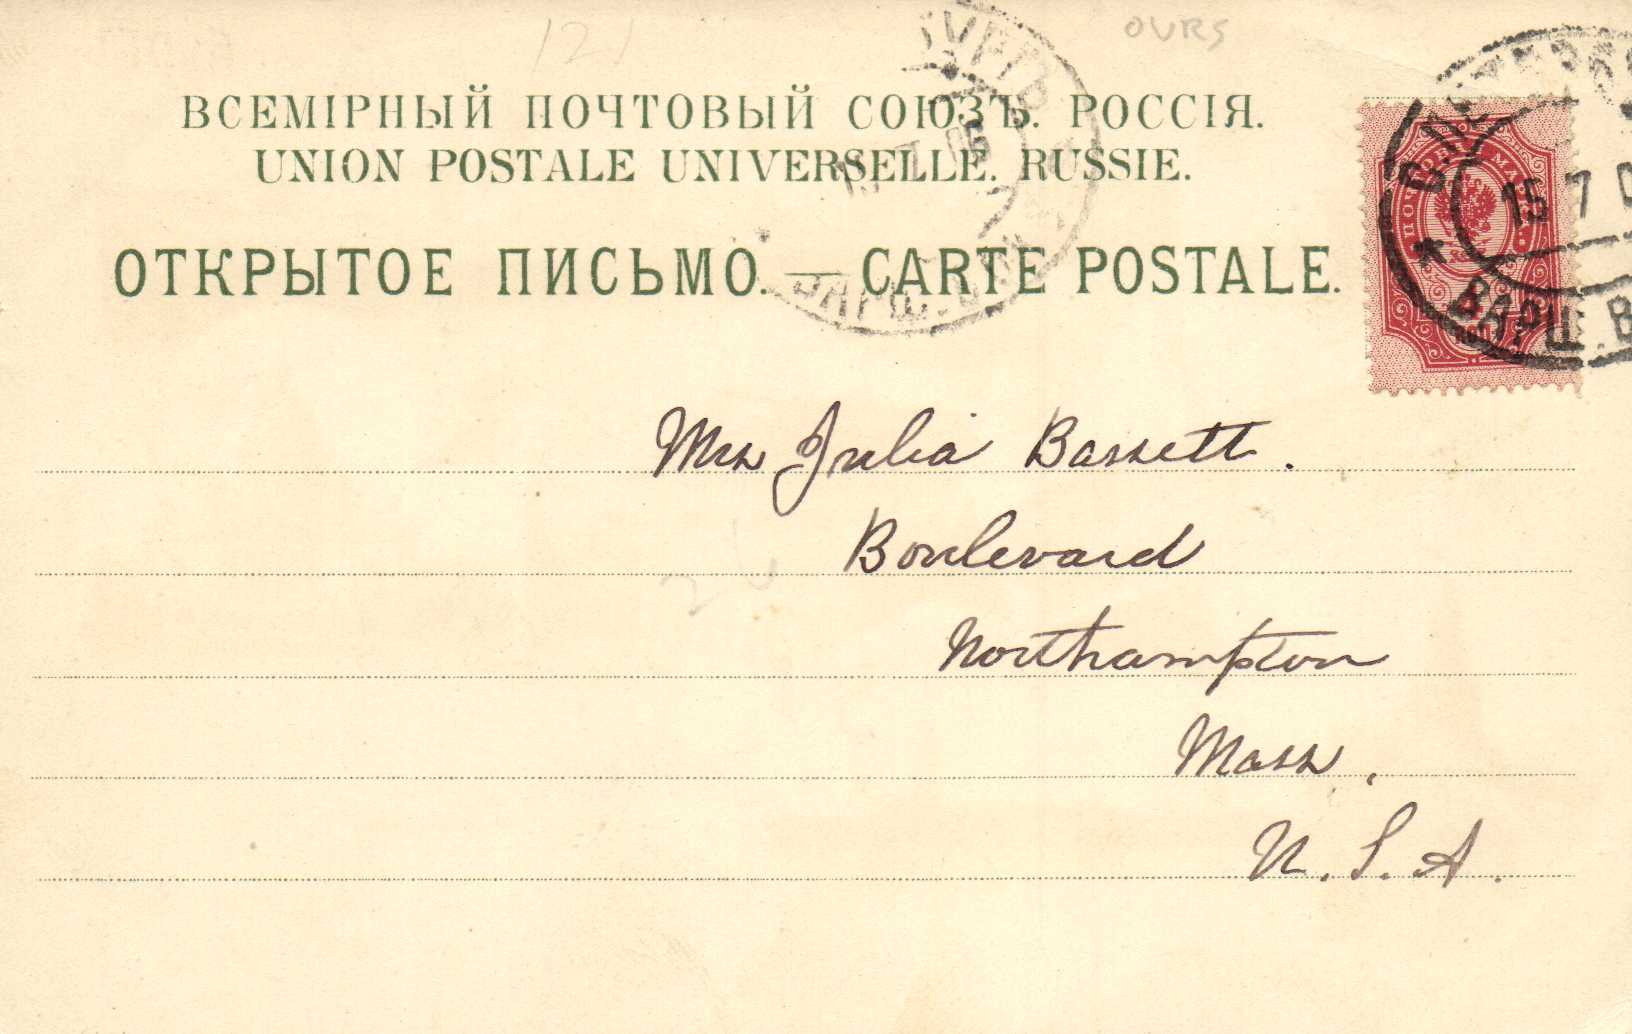 121
OURS
ВСЕМІРНЫЙ ПОЧТОВЫЙ СОЮЗЪ. РОССІЯ.
UNION POSTALE UNIVERSELLE. RUSSIE.
15 7 0
ВАРШ. В
ОТКРЫТОЕ ПИСЬМО. — CARTE POSTALE.
Mrs Julia Bassett.
Boulevard
Northampton
Mass.
U.S.A.